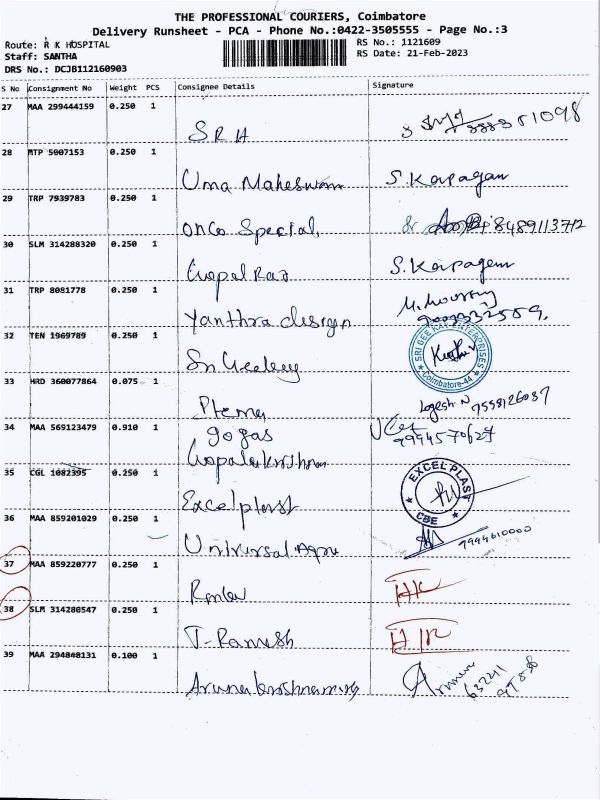 THE PROFESSIONAL COURIERS, Coimbatore
Delivery Runsheet - PCA - Phone No.:0422-3505555 - Page No.:3
Route: R K HOSPITAL
RS No.: 1121609
Staff: SANTHA
RS Date: 21-Feb-2023
DRS No.: DCJB112160903
S No Consignment No Weight PCS Consignee Details Signature
27 MAA 299444159 0.250 1
28 MTP 5007153 0.250 1
Uma Maheswari S. Karpagam
29 TRP 7939783 0.250 1
Onco Special, 8489113712
30 SLM 314288320 0.250 1
Gopal Raj S. Karpagam
31 TRP 8081778 0.250 1
Yanthra design
32 TEN 1969789 0.250 1
SRI GEE KAY ENTERPRISES
Coimbatore-44
33 HRD 360077864 0.075 1
Logesh N 7558126037
34 MAA 569123479 0.910 1
go gas 9994570627
Gopalakrishnan
35 CGL 1082395 0.250 1
EXCEL PLAST
CBE
Excel plast
36 MAA 859201029 0.250 1
Universal Agro
37 MAA 859220777 0.250 1
38 SLM 314280547 0.250 1
T. Ramesh
39 MAA 294848131 0.100 1